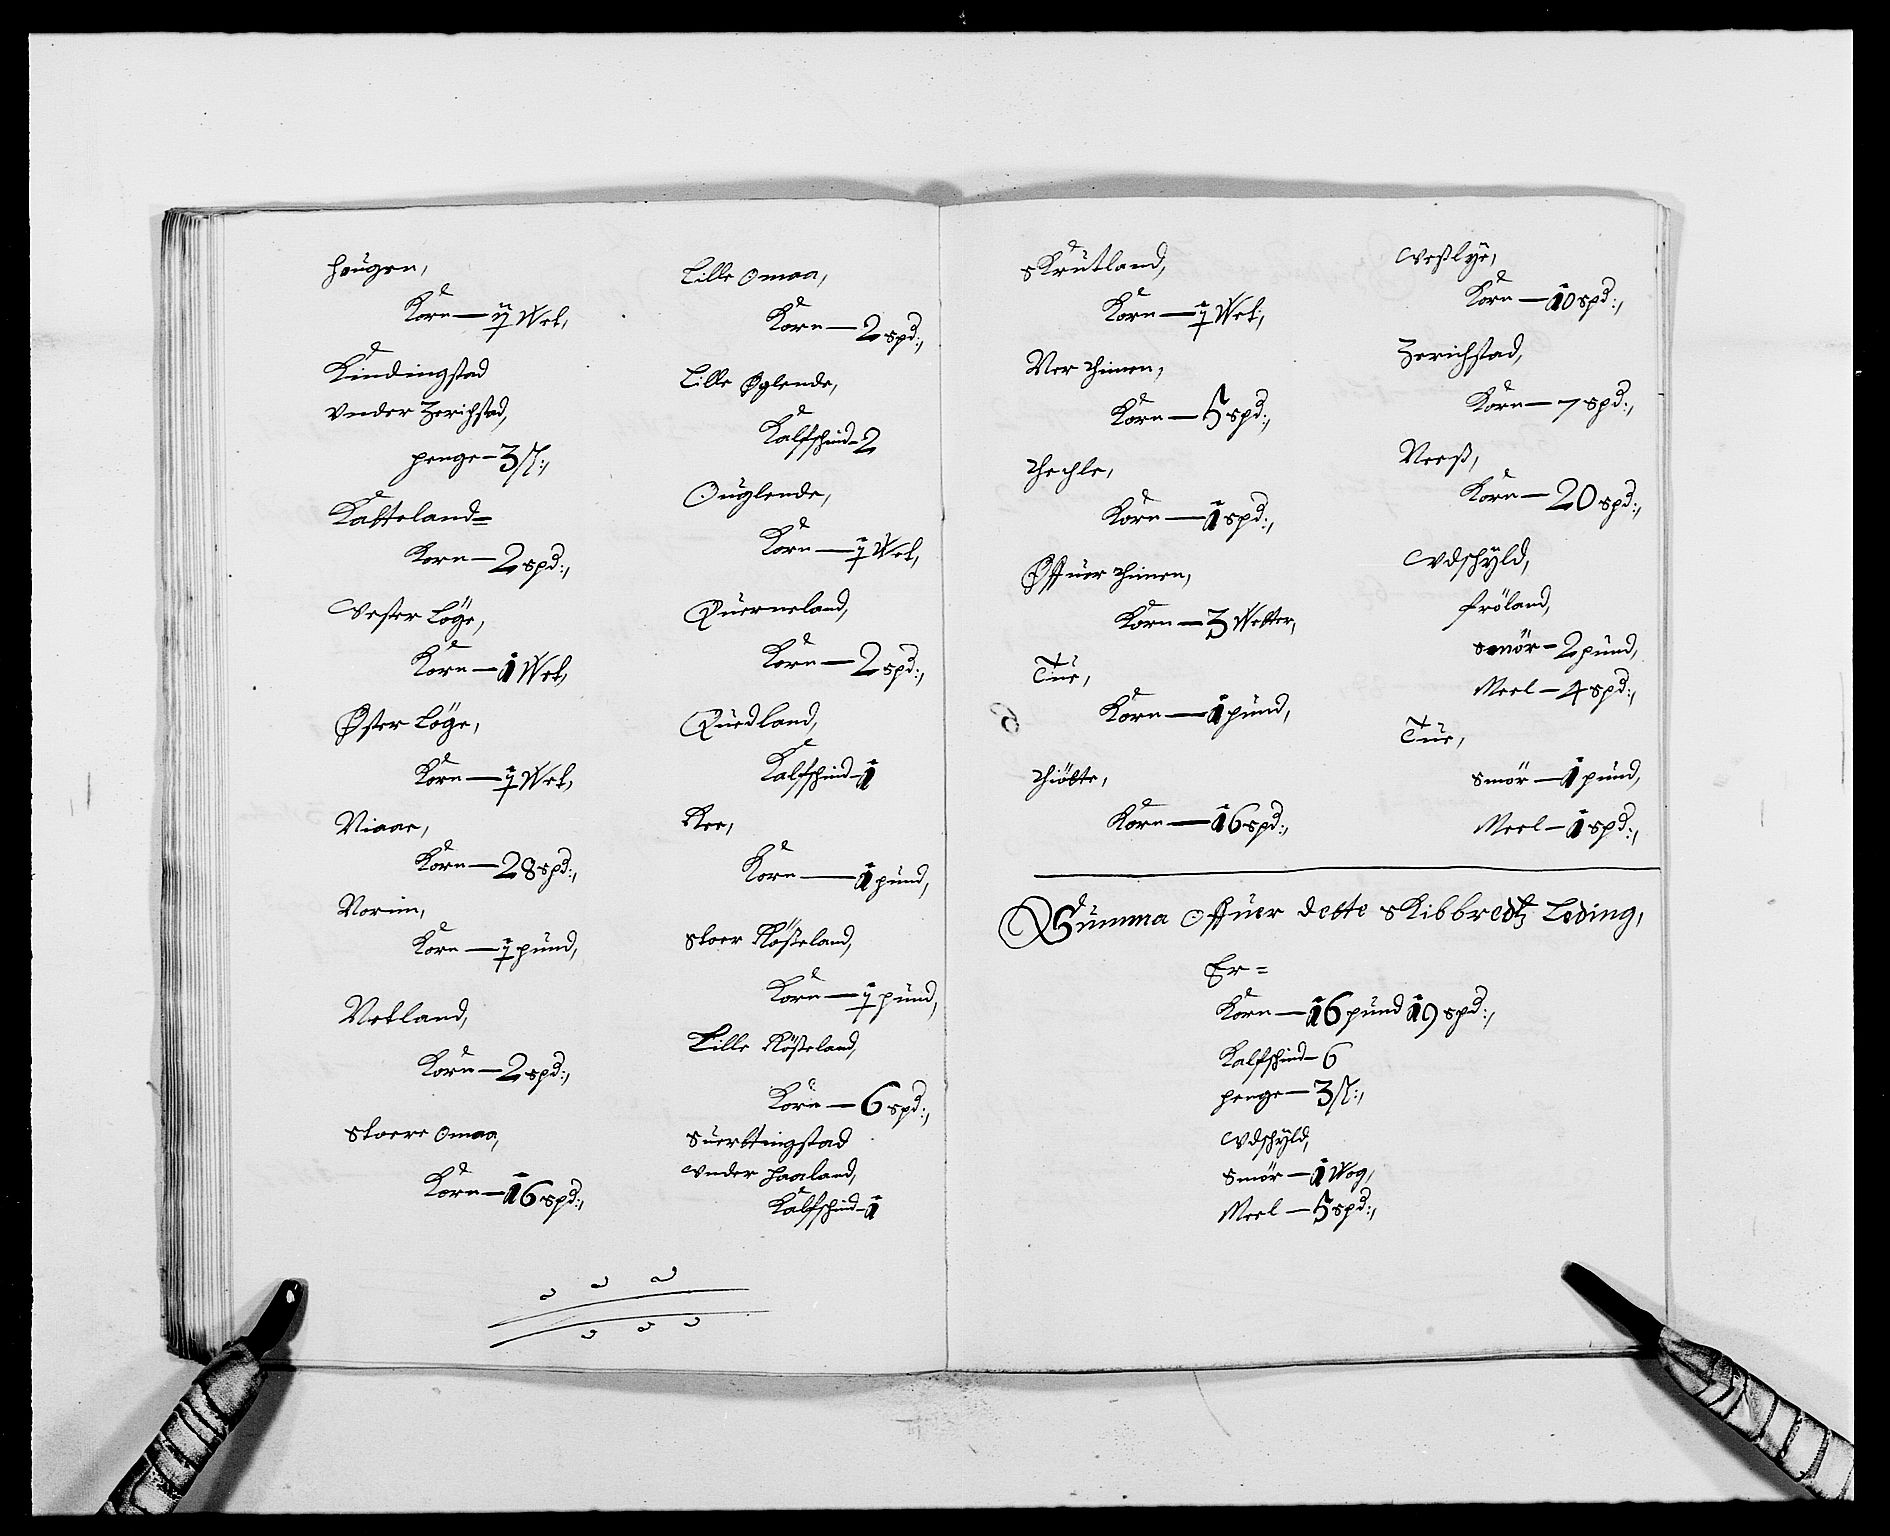 Haugen,
Korn — ½ Wet,
Kindingstad
vnder Zerichstad,
penge — 3 ß:,
Katteland =
Korn — 2 spd:,
Vester Löge,
Korn — 1 Wet,
Øster Löge,
Korn — ½ Wet,
Niaae,
Korn — 28 spd:,
Norim,
Korn — ½ pund,
Netland,
Korn — 2 spd:,
Stoere Omaa,
Korn — 16 spd:,
Lille Omaa,
Korn — 2 spd:,
Lille Øglende,
Kalfschind — 2
Ouglende,
Korn — ½ Wet,
Querneland,
Korn — 2 spd:,
Quedland,
Kalfschind — 1
Ree,
Korn — 1 pund,
Stoer Rösteland,
Korn — ½ pund,
Lille Rösteland,
Korn — 6 spd:,
Suerttingstad
vnder Haaland,
Kalfschind — 1
Skrutland,
Korn — ½ Wet,
Ner Thimen,
Korn — 5 spd:,
Thechle,
Korn — 1 spd:,
Øffuer Thimen,
Korn — 3 Wetter,
Tue,
Korn — 1 pund,
Thiötte,
Korn — 16 spd:,
Vestlye,
Korn — 10 spd:,
Zerichstad,
Korn — 7 spd:,
Neeß,
Korn — 20 spd:,
Vdschyld,
Fröland,
Smör — 2 pund,
Meel — 4 spd:,
Tue,
Smör — 1 pund,
Meel — 1 spd:,
Summa Offuer dette Skibbredtz Leding,
Er =
Korn — 16 pund 19 spd:,
Kalfschind — 6
penge — 3 ß:,
Vdschyld,
Smör — 1 Wog,
Meel — 5 spd:,